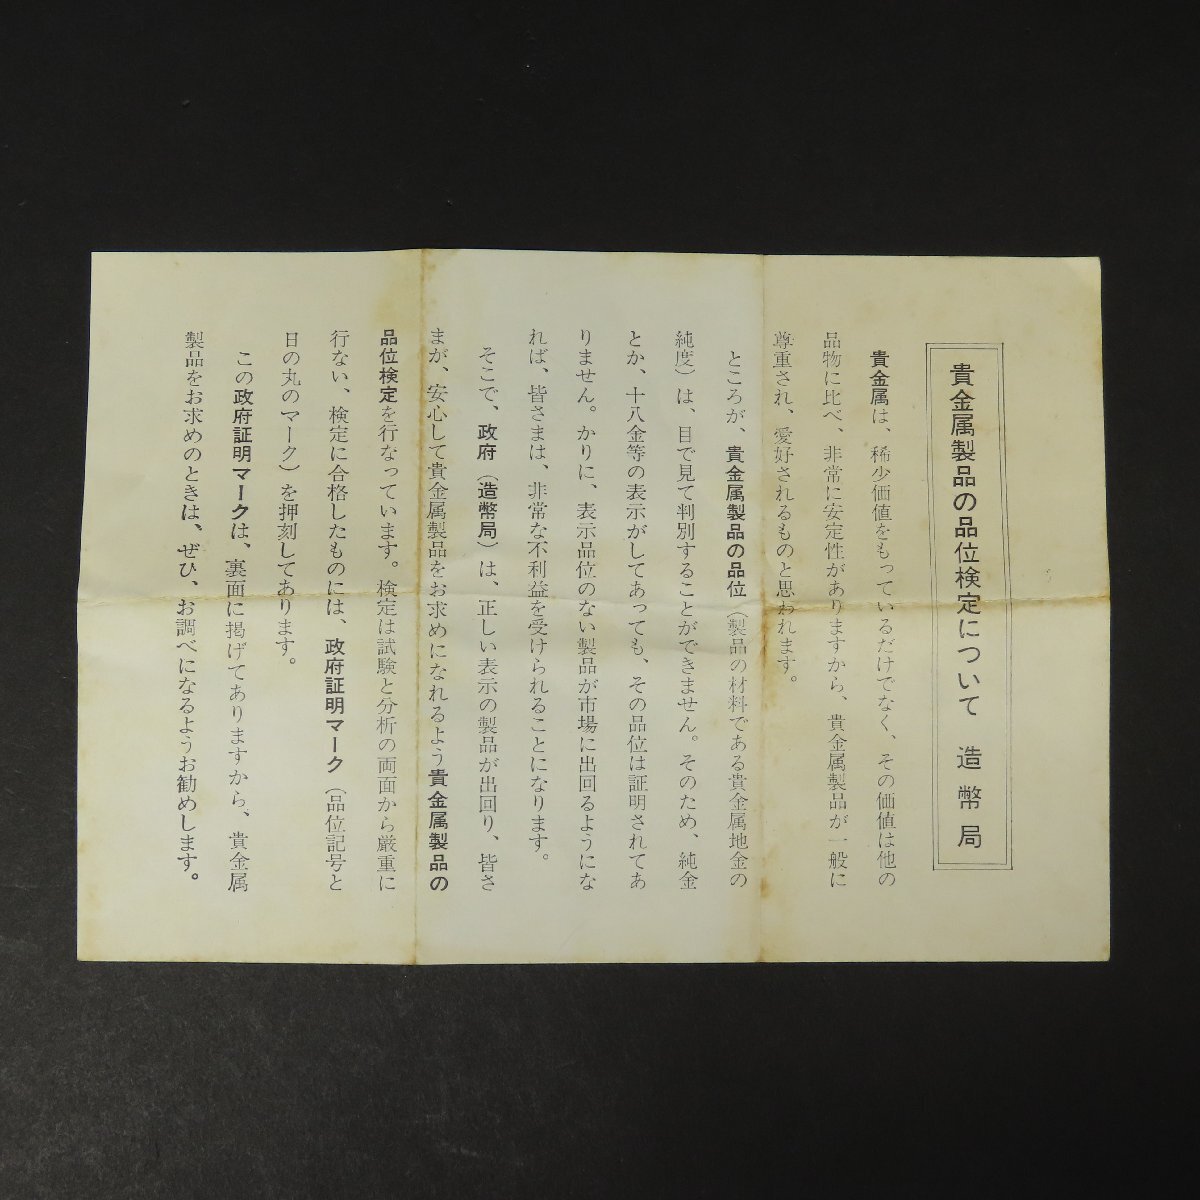 貴金属製品の品位検定について 造幣局
貴金属は、稀少価値をもっているだけでなく、その価値は他の
品物に比べ、非常に安定性がありますから、貴金属製品が一般に
尊重され、愛好されるものと思われます。
ところが、貴金属製品の品位(製品の材料である貴金属地金の
純度)は、目で見て判別することができません。そのため、純金
とか、十八金等の表示がしてあっても、その品位は証明されてあ
りません。かりに、表示品位のない製品が市場に出回るようにな
れば、皆さまは、非常な不利益を受けられることになります。
そこで、政府(造幣局)は、正しい表示の製品が出回り、皆さ
まが、安心して貴金属製品をお求めになれるよう貴金属製品の
品位検定を行なっています。検定は試験と分析の両面から厳重に
行ない、検定に合格したものには、政府証明マーク(品位記号と
日の丸のマーク)を押刻してあります。
この政府証明マークは、裏面に掲げてありますから、貴金属
製品をお求めのときは、ぜひ、お調べになるようお勧めします。